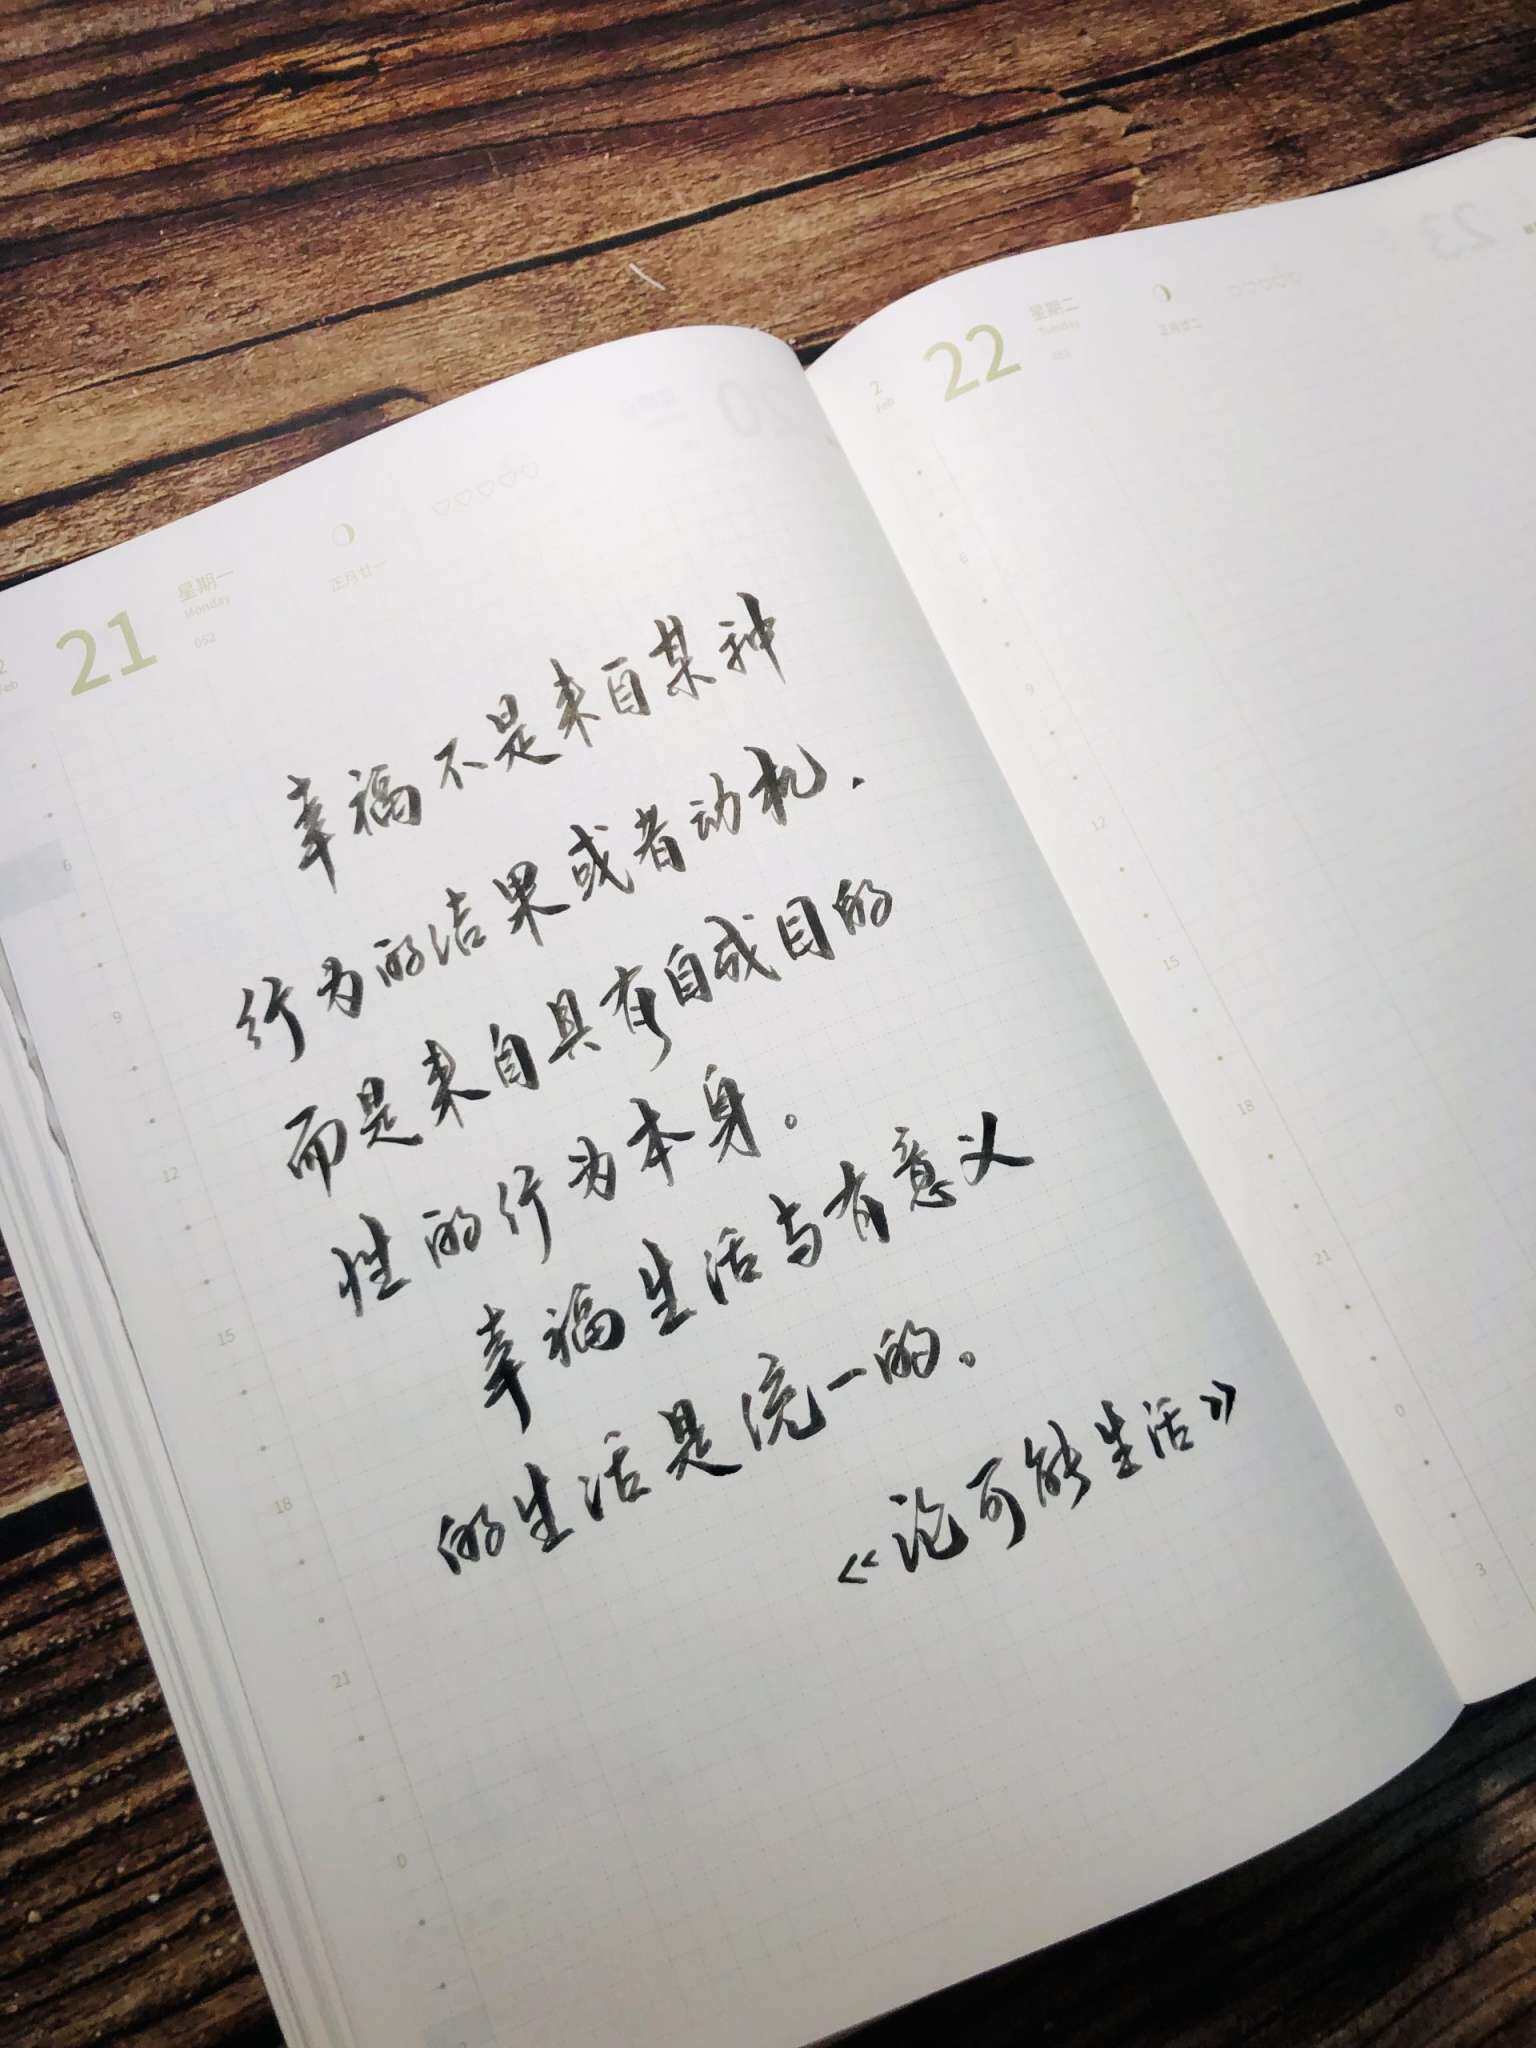 2
Feb
21
星期一
Monday
052
正月廿一
幸福不是来自某种
行为的结果或者动机,
而是来自具有自成目的
性的行为本身。
幸福生活与有意义
的生活是统一的。
《论可能生活》
6
9
12
15
18
21
0
2
Feb
22
星期二
Tuesday
053
正月廿二
6
9
12
15
18
21
0
3